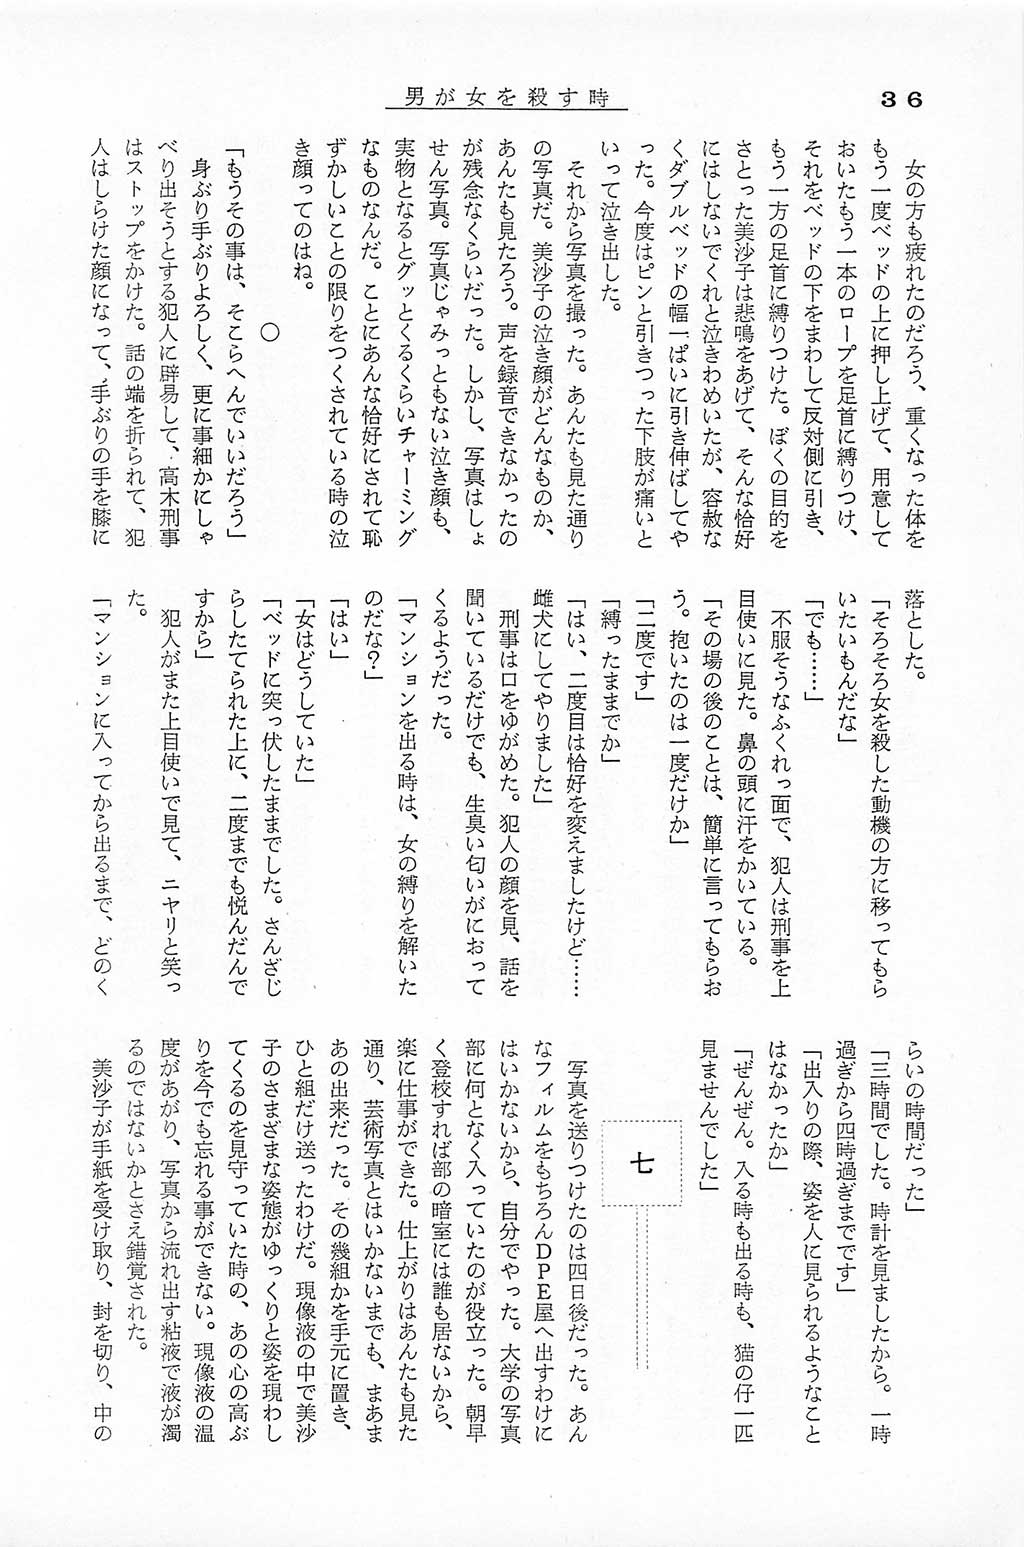 男が女を殺す時
36
　女の方も疲れたのだろう、重くなった体を
もう一度ベッドの上に押し上げて、用意して
おいたもう一本のロープを足首に縛りつけ、
それをベッドの下をまわして反対側に引き、
もう一方の足首に縛りつけた。ぼくの目的を
さとった美沙子は悲鳴をあげて、そんな恰好
にはしないでくれと泣きわめいたが、容赦な
くダブルベッドの幅一ぱいに引き伸ばしてや
った。今度はピンと引きつった下肢が痛いと
いって泣き出した。
　それから写真を撮った。あんたも見た通り
の写真だ。美沙子の泣き顔がどんなものか、
あんたも見たろう。声を録音できなかったの
が残念なくらいだった。しかし、写真はしょ
せん写真。写真じゃみっともない泣き顔も、
実物となるとグッとくるくらいチャーミング
なものなんだ。ことにあんな恰好にされて恥
ずかしいことの限りをつくされている時の泣
き顔ってのはね。
○
「もうその事は、そこらへんでいいだろう」
　身ぶり手ぶりよろしく、更に事細かにしゃ
べり出そうとする犯人に辟易して、高木刑事
はストップをかけた。話の端を折られて、犯
人はしらけた顔になって、手ぶりの手を膝に
落とした。
「そろそろ女を殺した動機の方に移ってもら
いたいもんだな」
「でも……」
　不服そうなふくれっ面で、犯人は刑事を上
目使いに見た。鼻の頭に汗をかいている。
「その場の後のことは、簡単に言ってもらお
う。抱いたのは一度だけか」
「二度です」
「縛ったままでか」
「はい、二度目は恰好を変えましたけど……
雌犬にしてやりました」
　刑事は口をゆがめた。犯人の顔を見、話を
聞いているだけでも、生臭い匂いがにおって
くるようだった。
「マンションを出る時は、女の縛りを解いた
のだな？」
「はい」
「女はどうしていた」
「ベッドに突っ伏したままでした。さんざじ
らしたてられた上に、二度までも悦んだんで
すから」
　犯人がまた上目使いで見て、ニヤリと笑っ
た。
「マンションに入ってから出るまで、どのく
らいの時間だった」
「三時間でした。時計を見ましたから。一時
過ぎから四時過ぎまでです」
「出入りの際、姿を人に見られるようなこと
はなかったか」
「ぜんぜん。入る時も出る時も、猫の仔一匹
見ませんでした」
七
　写真を送りつけたのは四日後だった。あん
なフィルムをもちろんＤＰＥ屋へ出すわけに
はいかないから、自分でやった。大学の写真
部に何となく入っていたのが役立った。朝早
く登校すれば部の暗室には誰も居ないから、
楽に仕事ができた。仕上がりはあんたも見た
通り、芸術写真とはいかないまでも、まあま
あの出来だった。その幾組かを手元に置き、
ひと組だけ送ったわけだ。現像液の中で美沙
子のさまざまな姿態がゆっくりと姿を現わし
てくるのを見守っていた時の、あの心の高ぶ
りを今でも忘れる事ができない。現像液の温
度があがり、写真から流れ出す粘液で液が濁
るのではないかとさえ錯覚された。
　美沙子が手紙を受け取り、封を切り、中の